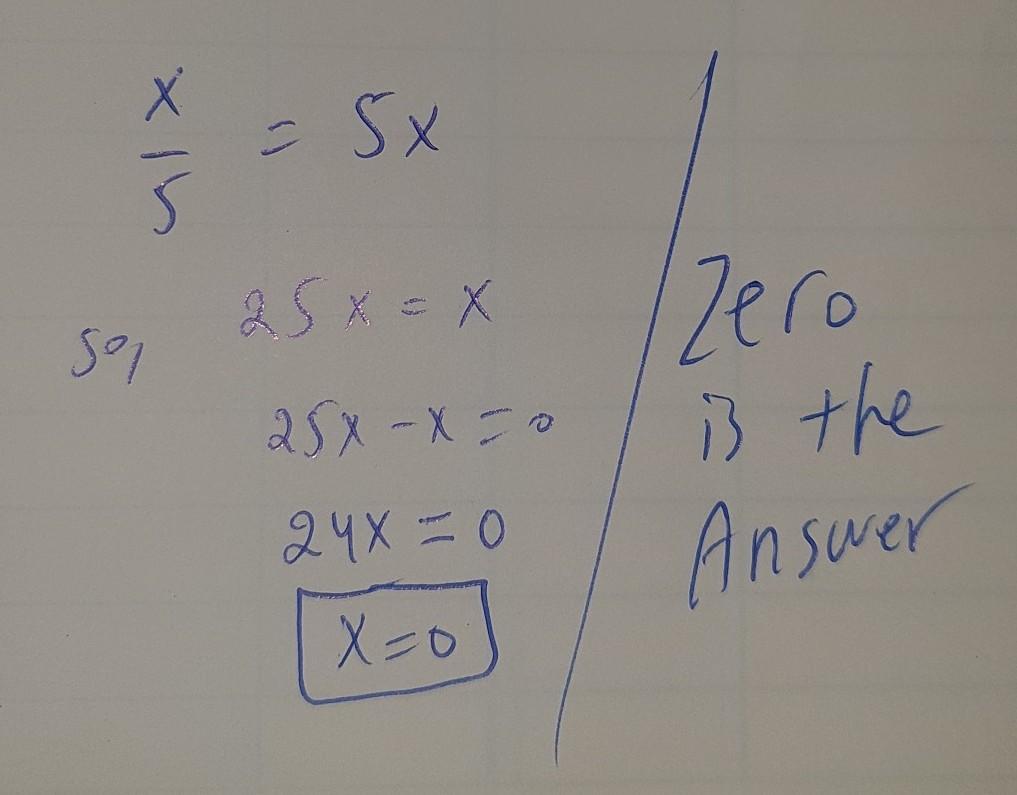 x/5 = 5x
so, 25x = x
25x - x = 0
24x = 0
x = 0
Zero
is the
Answer